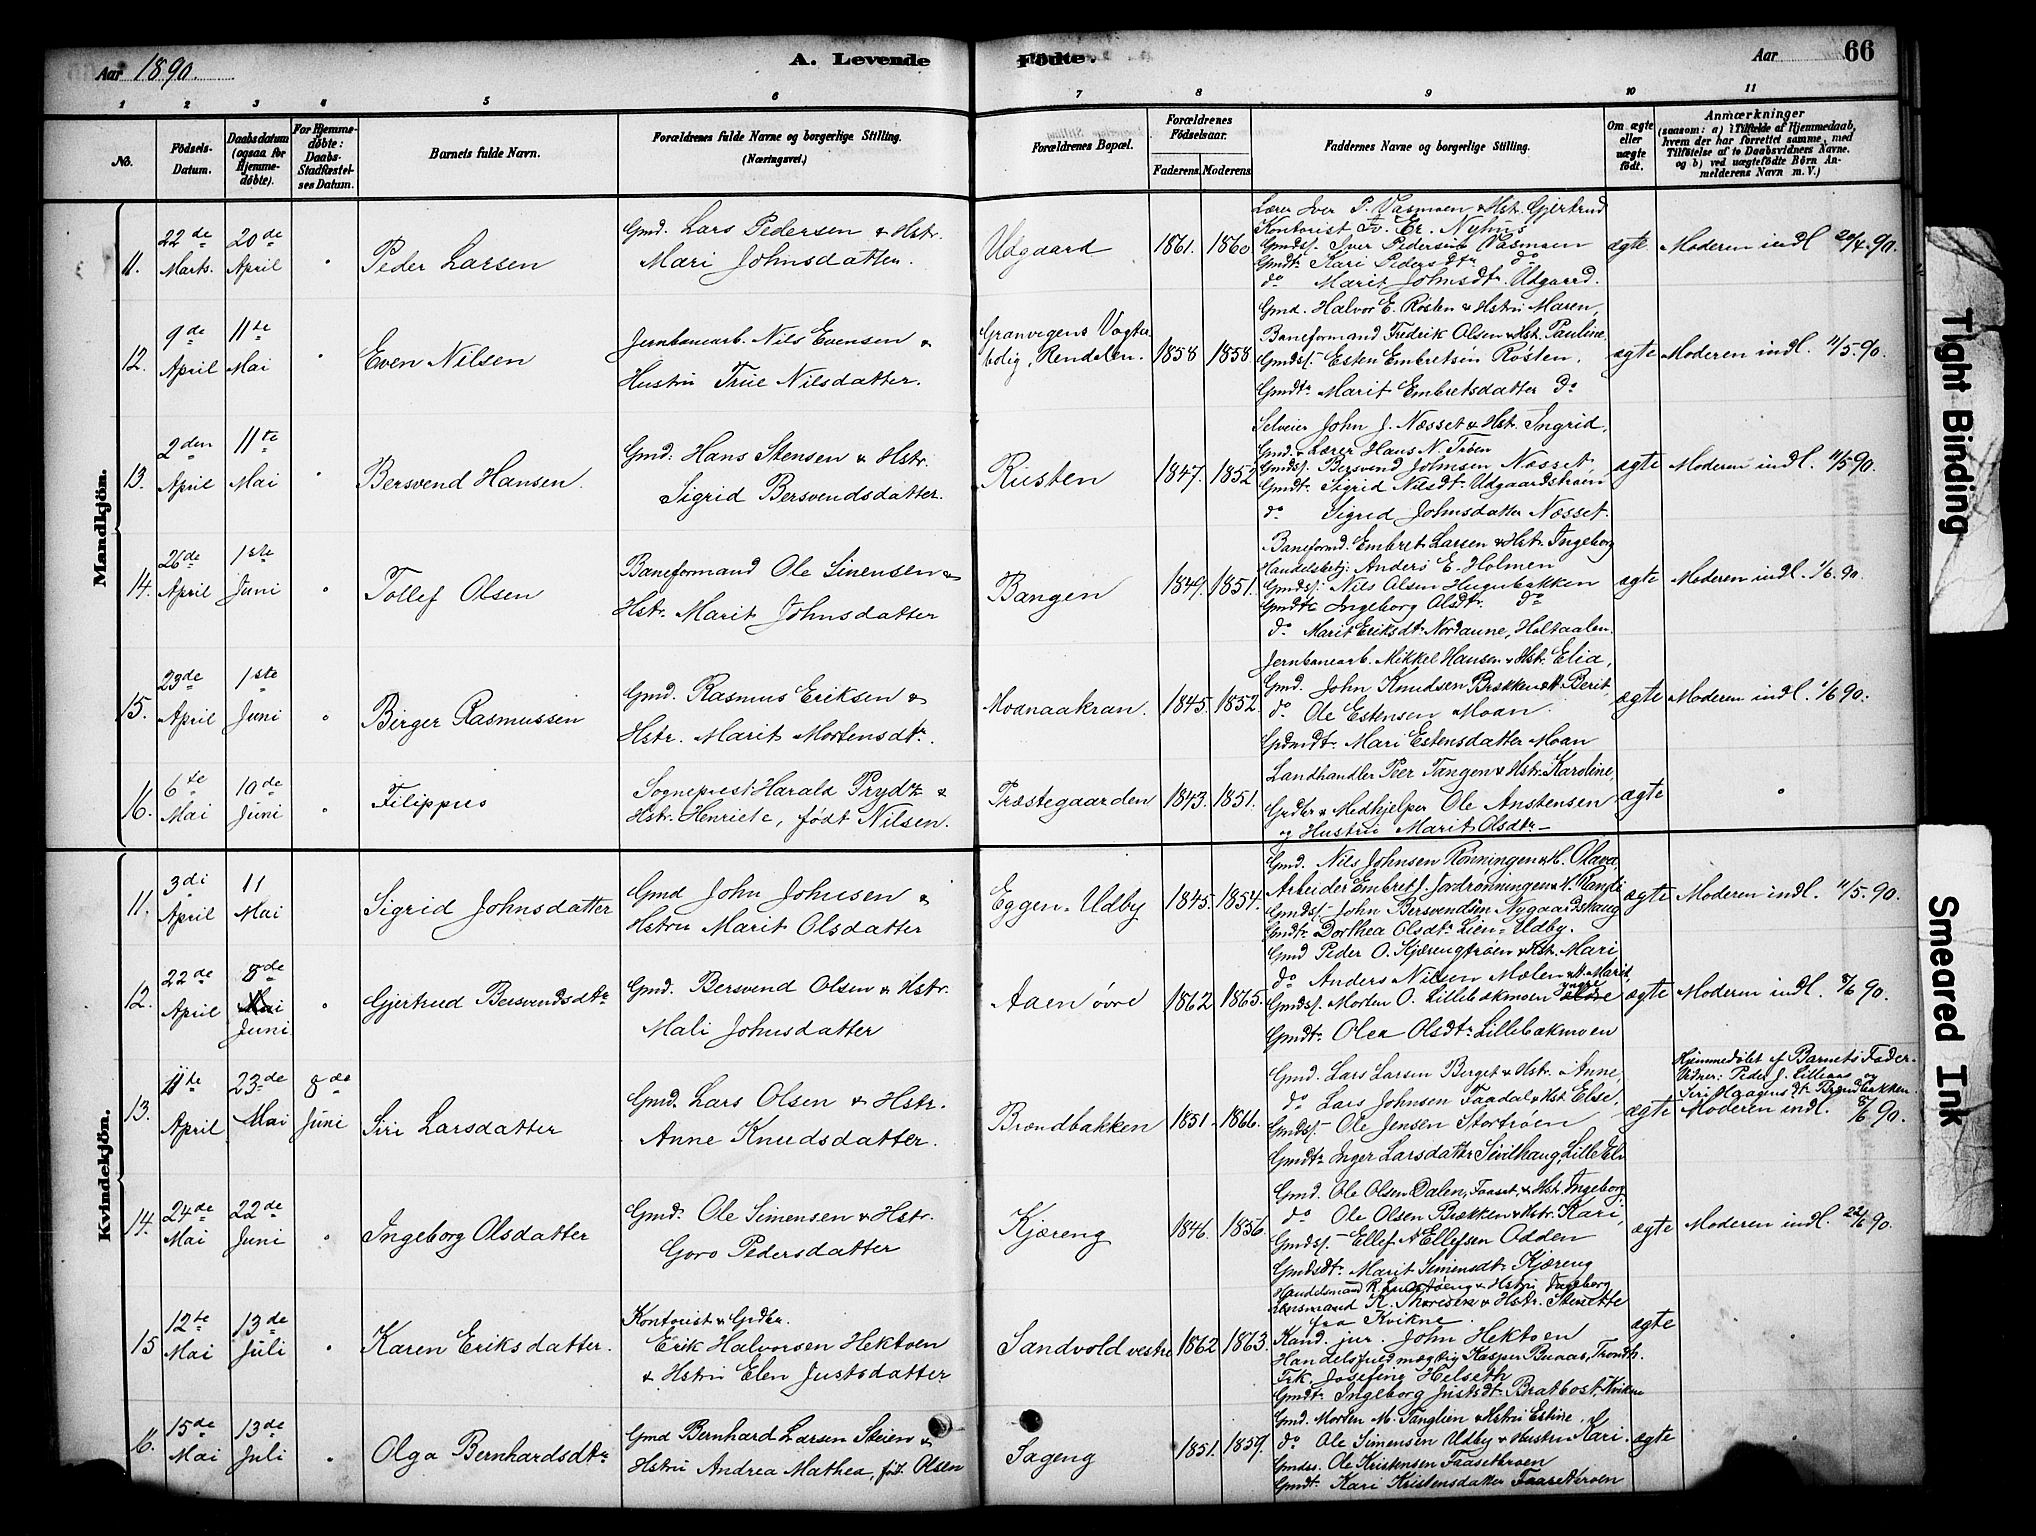 Aar 1890. A. Levende Födte. Aar 66
1 2 3 4 5 6 7 8 9 10 11
No. Födsels-Datum. Daabsdatum (ogsaa for Hjemme-døbte). For Hjemme-døbte: Daabs-Stadfæstelses Datum. Barnets fulde Navn. Forældrenes fulde Navne og borgerlige Stilling. (Næringsvei.) Forældrenes Bopæl. Forældrenes Fødselsaar. Faderens. Moderens. Faddernes Navne og borgerlige Stilling. Om ægte eller uægte født. Anmærkninger
(saasom: a) i Tilfælde af Hjemmedaab, hvem der har forrettet samme, med Tilføielse af to Daabsvidners Navne. og b) ved uægtefødte Børn Anmelderens Navn m. V.)
Mandkjön.
11. 22de Marts. 20de April " Peder Larsen
Gmd. Lars Pedersen & Hstr.
Mari Johnsdatter.
Udgaard 1861. 1860
Lærer Iver P. Vasmoen & Hst. Gjertrud
Kontorist Fr. Er. Nyhus
Gmdsf. Iver Pedersen Vasmoen
Gmdtr. Kari Pedersdtr. do
do Marit Johnsdtr. Udgaard.
ægte Moderen indl. 20/4.90.
12. 9de April 11te Mai " Even Nilsen
Jernbanearb. Nils Evensen &
Hustru True Nilsdatter.
Granvegens Vogter
bolig, Rendalen. 1858 1858.
Gmd. Halvor E. Røsten & Hstru Maren,
Baneformand Fredrik Olsen & Hst. Pauline
Gmdsf. Esten Embretsen Røsten.
Gmdtr. Marit Embretsdatter do
ægte Moderen indl. 11/5.90.
13. 2den April 11te Mai " Bersvend Hansen.
Gmd. Hans Stensen & Hstr.
Sigrid Bersvendsdatter.
Rusten 1847. 1852
Selveier John J. Næsset & Hst. Ingrid,
Gmd. & Lærer Hans N. Trøen
Gmdsf. Bersvend Johnsen Næsset,
Gmdtr. Sigrid Nilsdtr. Udgaardstrøen
do Sigrid Johnsdatter Næsset.
ægte Moderen indl. 11/5 90.
14. 26de April 1ste Juni " Tollef Olsen
Baneformand Ole Simensen &
Hstr. Marit Johnsdatter
Bangen 1849. 1851.
Baneformd. Embret Larsen & Hstr. Ingeborg
Handelsbetj. Anders E. Holmen
Gmdsf. Nils Olsen Hugubakken
Gmdtr. Ingeborg Olsdtr. do
do Marit Eriksdtr. Nordaune, Holtaalen.
ægte Moderen indl. 1/6. 90.
15. 23de April 1ste Juni " Birger Rasmussen
Gmd. Rasmus Eriksen &
Hstr. Marit Mortensdtr.
Moanaakran. 1845. 1852.
Jernbanearb. Mikkel Hansen & Hstr. Elia,
Gmd. John Knudsen Brækken & H. Berit
do Ole Estensen Moan.
Mari Estensdatter Moan
ægte Moderen indl. 1/6 90.
16. 6te Mai 10de Juni " Filippus
Sogneprest Harald Prydz &
Hstr. Henriete, født Nilsen.
Præstegaarden 1843. 1851.
Landhandler Peer Tangen & Hstr. Karoline,
Grdbr. & Medhjelper Ole Anstensen
og Hustru Marit Olsdtr.
ægte "
Kvindekjön.
11. 3di April 11 Mai Sigrid Johnsdatter
Gmd John Johnsen &
Hstru Marit Olsdatter
Eggen. Udby 1845. 1854.
Gmd. Nils Johnsen Rønningen & H. Olava
Arbeider Embret J. Jordrønningen & H. Randi
Gmdsf. John Bersvendsen Nygaardshaug
Gmdtr. Dorthea Olsdtr. Lien = Udby.
ægte Moderen indl. 11/5. 90.
12. 22de April 8de Mai Juni " Gjertrud Bersvendsdtr
Gmd. Bersvend Olsen & Hstr.
Mali Johnsdatter
Aaen övre 1862 1865.
Gmd Peder O. Kjærengtrøen & Hst. Mari
do Anders Nilsen Mælen & H. Marit,
yngre
Gmdsf. Morten O. Lillebækmoen
Gmdtr. Olea Olsdtr. Lillebækmoen
ægte Moderen indl. 8/6 90.
13. 11te April 23de Mai 8de Juni Siri Larsdatter
Gmd. Lars Olsen & Hstr.
Anne Knudsdatter.
Brændbakken 1851. 1866.
Gmd. Lars Larsen Berget & Hstr. Anne,
do Lars Johnsen Faadal & Hst. Else,
Gmdsf. Ole Jensen Stortrøen
Gmdtr. Inger Larsdatter Sivilhaug, Lille Elv
Hjemmedøbt af Barnets Fader.
Vidner: Peder J. Lilleaas og
ægte Moderen indl. 8/6 90.
14. 24de Mai 22de Juni " Ingeborg Olsdatter
Gmd. Ole Simensen & Hstr.
Goro Pedersdatter
Kjæreng 1846. 1856.
Gmd. Ole Olsen Dalen, Faaset, & Hst. Ingeborg
do Ole Olsen Brækken & Hstr. Kari,
Gmdsf. Ellef A Ellefsen Odden
Gmdsdtr. Marit Simensdtr. Kjæreng
ægte Moderen indl. 22/6 90.
15 12te Mai 13de Juli " Karen Eriksdatter.
Kontorist & Grdbr.
Erik Halvorsen Hektoen
& Hstru Elen Justsdatter
Sandvold vestre 1862 1863.
Lensmand K. Thoresen & Hstr. Stenette
fra Kvikne.
Kand. jur. John Hektoen
Handelsfuldmægtig Kasper Buaas, Trondh.
Frk. Josefine Helseth
Gmdtr. Ingeborg Justsdtr. Bratbost Kvikne
ægte "
16. 15de Mai 13de Juli " Olga Bernhardsdtr
Gmd Bernhard Larsen Steien &
Hstru Andrea Mathea, föd. Olsen
Sageng 1851. 1859.
Gmd. Morten M. Tanglien & Hstru Estine.
do Ole Simensen Udby & Hustru Kari.
Gmdss. Ole Kristensen Faasettrøen
Gmdt. Kari Kristensdatter Faasettrøen
ægte "
Tight Binding
Smeared Ink